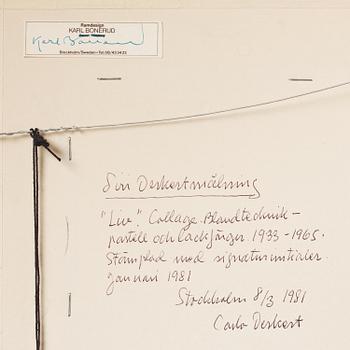 Ramdesign
KARL BONERUD
Karl Bonerud
Stockholm/Sweden • Tel 08/
Siri Derkertmålning
"Liv". Collage. Blandteknik –
pastell och lackfärger. 1933 - 1965.
Stämplad med signaturinitialer.
Januari 1981
Stockholm 8/3 1981
Carlo Derkert